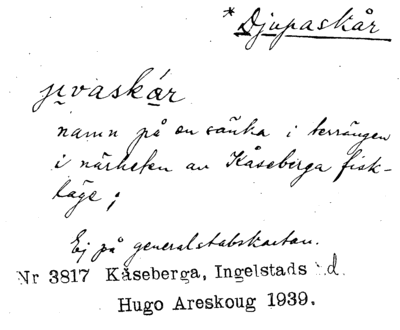 * Djupaskår
juvaskár
namn på en sänka i terrängen
i närheten av Kåseberga fisk-
läge;
Ej på generalstabskartan.
Nr 3817 Kåseberga, Ingelstads :d.
Hugo Areskoug 1939.